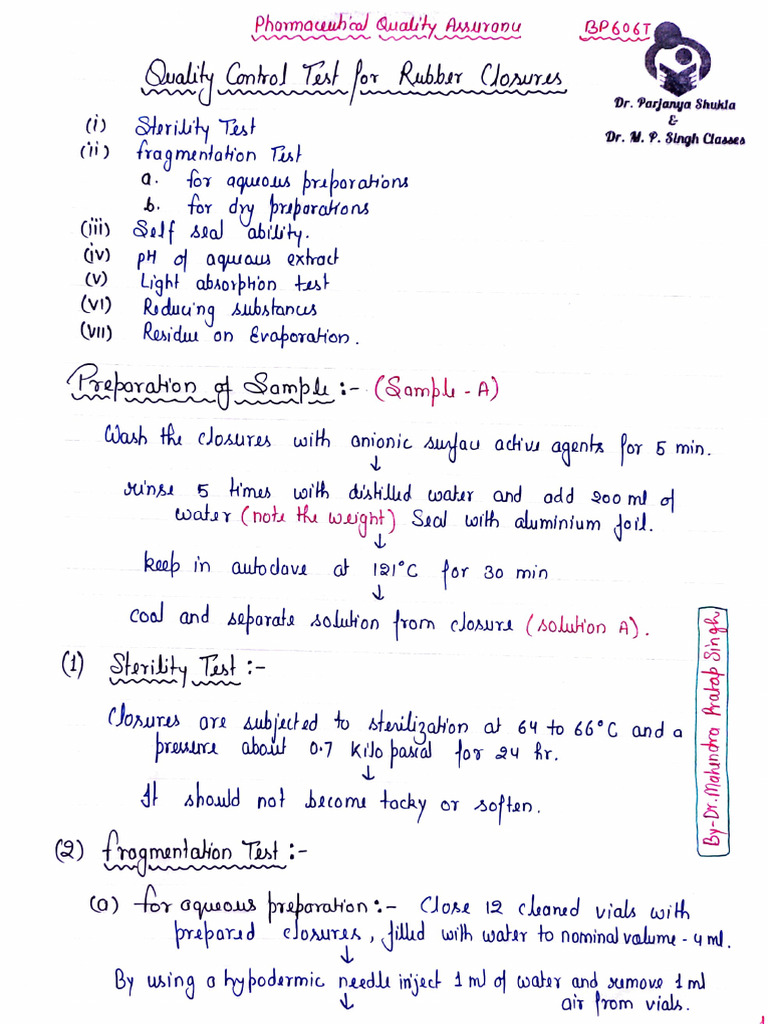 Pharmaceutical Quality Assurance BP606T
Quality Control Test for Rubber Closures
Dr. Parjanya Shukla
&
Dr. M. P. Singh Classes
(i) Sterility Test
(ii) fragmentation Test
a. for aqueous preparations
b. for dry preparations
(iii) Self seal ability.
(iv) pH of aqueous extract
(v) Light absorption test
(vi) Reducing substances
(vii) Residue on Evaporation.
Preparation of Sample :- (Sample - A)
Wash the closures with anionic surface active agents for 5 min.
↓
rinse 5 times with distilled water and add 200 ml of
water (note the weight) Seal with aluminium foil.
↓
keep in autoclave at 121°C for 30 min
↓
cool and separate solution from closure (solution A).
(1) Sterility Test :-
Closures are subjected to sterilization at 64 to 66°C and a
pressure about 0.7 Kilo pascal for 24 hr.
↓
It should not become tacky or soften.
(2) fragmentation Test :-
(a) for aqueous preparation :- Close 12 cleaned vials with
prepared closures, filled with water to nominal volume - 4 ml.
↓
By using a hypodermic needle inject 1 ml of water and remove 1 ml
↓ air from vials.
By-Dr. Mahendra Pratap Singh